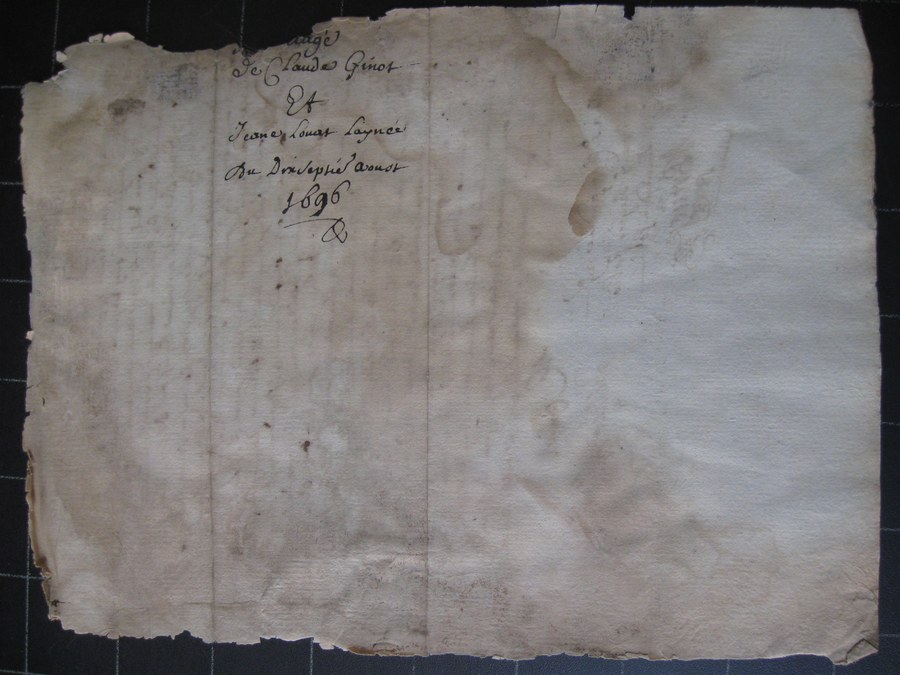 de Claude Ginot
Et
Jeane Louat Laynée
Du Dixseptie Aoust
1696